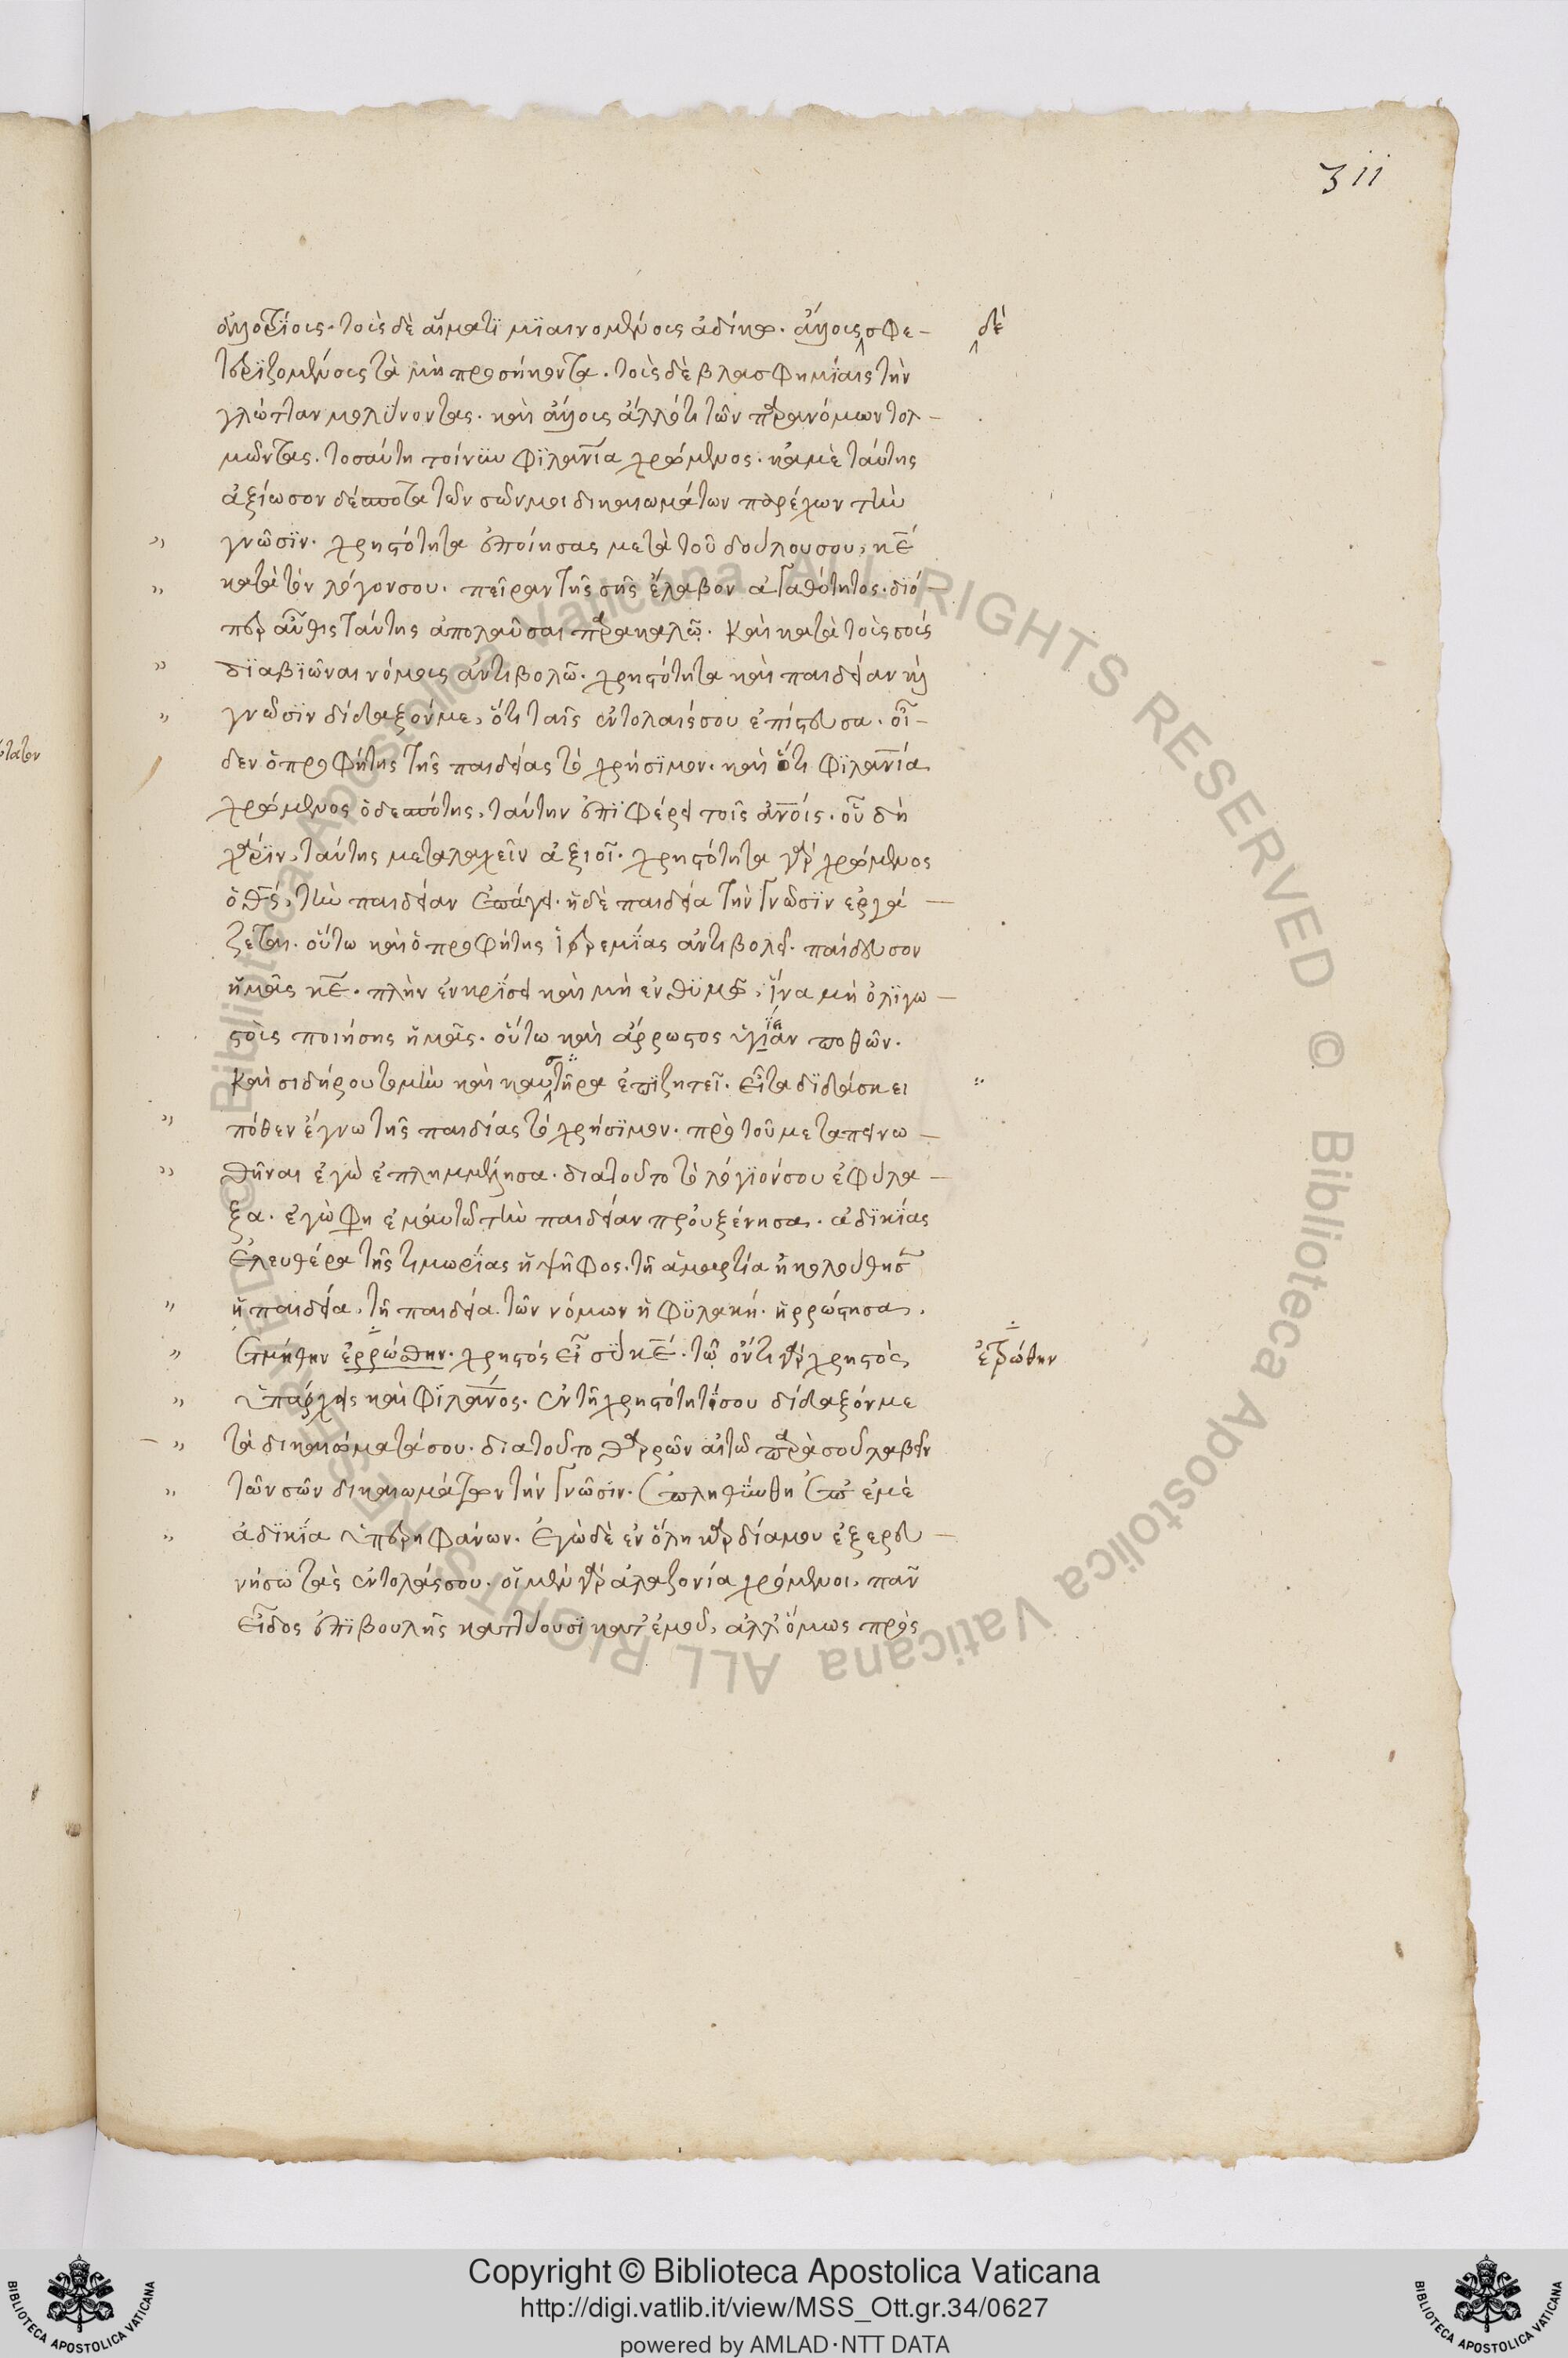 311
ἀλλοτρίοις. τοὺς δὲ αἵματϊ μϊαινομένους ἀδίκῳ. ἄλλους σφε- δὲ
τεριζομένους τὰ μὴ προσήκοντα. τοὺς δὲ βλασφημίαις τὴν
γλώτταν μολύνοντας. καὶ ἄλλους ἀλλότι τῶν παρανόμων τολ-
μῶντας. τοσαύτη τοίνυν φϊλανία χρώμενος. καμὲ ταύτης
ἀξίωσον δέσποτα τῶν σῶν μοι δικαιωμάτων παρέχων τὴν
" γνῶσϊν. χρηστότητα ἐποίησας μετὰ τοῦ δούλου σου, κε
" κατὰ τὸν λόγον σου. πεῖραν τῆς σῆς ἔλαβον ἀγαθότητος. διό
περ αὖθις ταύτης ἀπολαῦσαι παρακαλῶ. καὶ κατὰ τοὺς σοὺς
" δϊαβϊῶναι νόμους ἀντιβολῶ. χρηστότητα καὶ παιδείαν καὶ
" γνῶσϊν δίδαξόν με, ὅτι ταῖς ἐντολαῖς σου ἐπίστευσα. οἶ-
δεν ὁ προφήτης τῆς παιδείας τὸ χρήσϊμον. καὶ ὅτι φϊλανία
χρώμενος ὁ δεσπότης, ταύτην ἐπϊφέρει τοῖς ἀνοις. οὗ δὴ
χάρϊν, ταύτης μεταλαχεῖν ἀξιοῖ. χρηστότητα γὰρ χρώμενος
ὁ θς, τὴν παιδείαν ἐπάγει. ἡ δὲ παιδεία τὴν γνῶσϊν ἐργά-
ζεται. οὕτω καὶ ὁ προφήτης ἱερεμΐας ἀντιβολεῖ. παίδευσον
ἡμᾶς κε. πλὴν ἐν κρίσει καὶ μὴ ἐν θυμῷ, ἵνα μὴ ὀλϊγω-
στοὺς ποιήσης ἡμᾶς. οὕτω καὶ ἄρρωστος ὑγίαν ποθῶν.
καὶ σιδήρου τομὴν καὶ καυτῆρα ἐπϊζητεῖ. εἶτα δϊδάσκει
" πόθεν ἔγνω τῆς παιδίας τὸ χρήσϊμον. πρὸ τοῦ με ταπεινω-
" θῆναι ἐγὼ ἐπλημμέλησα. διατοῦτο τὸ λόγϊόν σου ἐφύλα-
ξα. ἐγὼ φη ἐμαυτῷ τὴν παιδείαν προὐξένησα. ἀδϊκΐας
ἐλευθέρα τῆς τιμωρΐας ἡ ψῆφος. τῆ ἁμαρτία ἠκολούθησ
" ἡ παιδεία, τῆ παιδεία τῶν νόμων ἡ φϋλακή. ἠρρώστησα,
" ἐτμήθην ἐρρώθην. χρηστὸς εἶ σὺ κε. τῷ ὄντι γὰρ χρηστὸς ἐρρώθην
" ὑπάρχεις καὶ φϊλανος. ἐν τῆ χρηστότητί σου δίδαξόν με
" τὰ δικαιώματά σου. διατοῦτο θαρρῶν αἰτῶ παρὰ σοῦ λαβεῖν
" τῶν σῶν δικαιωμάτων τὴν γνῶσιν. ἐπληθύνθη ἐπ' ἐμὲ
" ἀδϊκΐα ὑπερηφάνων. ἐγὼ δὲ ἐν ὅλη καρδία μου ἐξερευ-
νήσω τὰς ἐντολάς σου. οἱ μὲν γὰρ ἀλαζονία χρώμενοι, πᾶν
εἶδος ἐπϊβουλῆς καττύουσϊ κατ' ἐμοῦ, ἀλλ' ὅμως πρὸς
Copyright © Biblioteca Apostolica Vaticana
http://digi.vatlib.it/view/MSS_Ott.gr.34/0627
powered by AMLAD·NTT DATA
BIBLIOTECA APOSTOLICA VATICANA
BIBLIOTECA APOSTOLICA VATICANA
© Biblioteca Apostolica Vaticana ALL RIGHTS RESERVED © Biblioteca Apostolica Vaticana ALL RIGHTS RESERVED